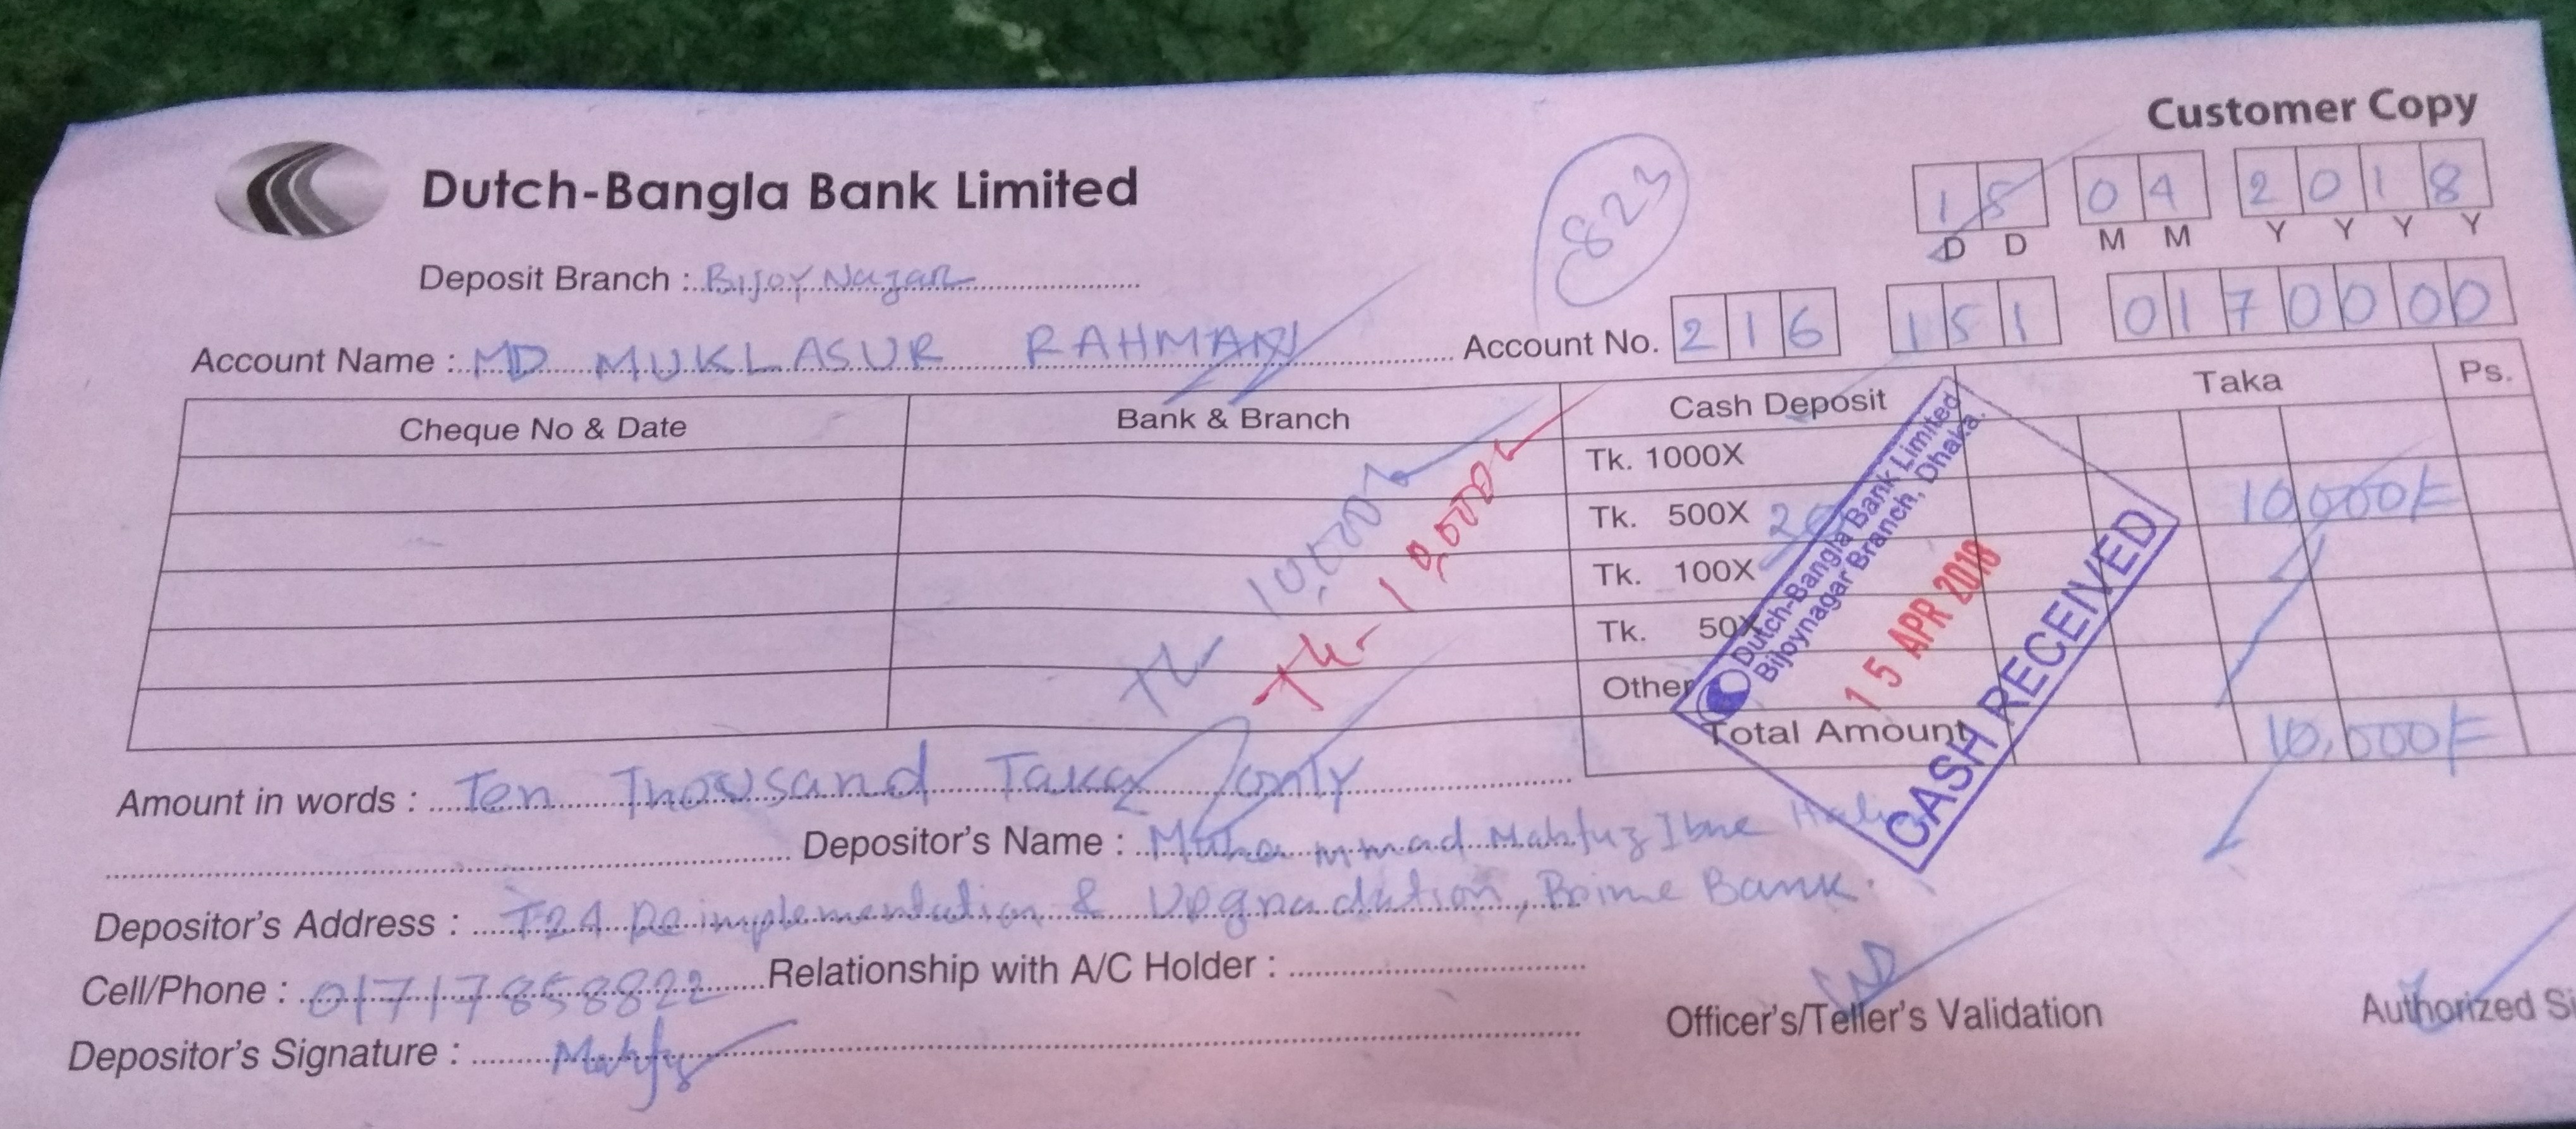 Customer Copy
Dutch-Bangla Bank Limited
823
15 04 2018
D D M M Y Y Y Y
Deposit Branch : Bijoy Nagar
Account Name : MD MUKLASUR RAHMAN Account No. 216 151 0170000
Cheque No & Date Bank & Branch Cash Deposit Taka Ps.
Tk. 1000X
Tk. 500X 20 10,000/=
Tk. 100X
Tk. 50X
Other
Total Amount 10,000/=
Tk 10,000/-
Tk- 10,000/-
Dutch-Bangla Bank Limited
Bijoynagar Branch, Dhaka.
15 APR 2018
CASH RECEIVED
Amount in words : Ten Thousand Taka only
Depositor's Name : Muhammad Mahfuz Ibne
Depositor's Address : T24 Reimplementation & Upgradation, Prime Bank.
Cell/Phone : 01717858822 Relationship with A/C Holder :
Depositor's Signature : Mahfuz
Officer's/Teller's Validation Authorized Si